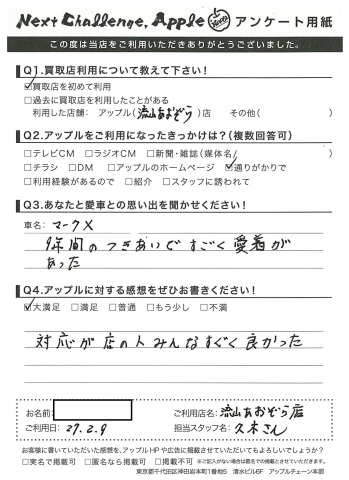 Next Challenge, Apple アンケート用紙
この度は当店をご利用いただきありがとうございました。
Q1.買取店利用について教えて下さい！
☑買取店を初めて利用
□過去に買取店を利用したことがある
利用した店舗： アップル（流山あおぞら）店 その他（ ）
Q2.アップルをご利用になったきっかけは？（複数回答可）
□テレビCM □ラジオCM □新聞・雑誌（媒体名 ）
□チラシ □DM □アップルのホームページ ☑通りがかりで
□利用経験があるので □紹介 □スタッフに誘われて
Q3.あなたと愛車との思い出を聞かせください！
車名：マークX
9年間のつきあいですごく愛着が
あった
Q4.アップルに対する感想をぜひお書きください！
☑大満足 □満足 □普通 □もう少し □不満
対応が店の人みんなすごく良かった
お名前： ご利用店名：流山あおぞら店
ご利用日：27.2.9 担当スタッフ名：久木さん
お客様に書いていただいた感想を、アップルHPや広告に掲載させていただいてもよろしいでしょうか？
□実名で掲載可 □匿名なら掲載可 □掲載不可 ※ご記入がない場合は匿名での掲載とさせていただきます。
東京都千代田区神田岩本町1番地5 清水ビル6F アップルチェーン本部